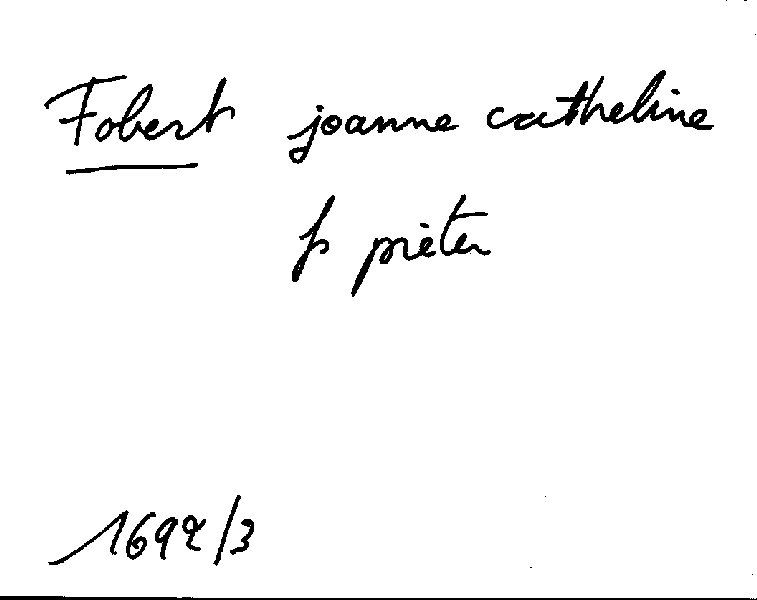 Fobert joanne catheline
fs pieter
1692/3